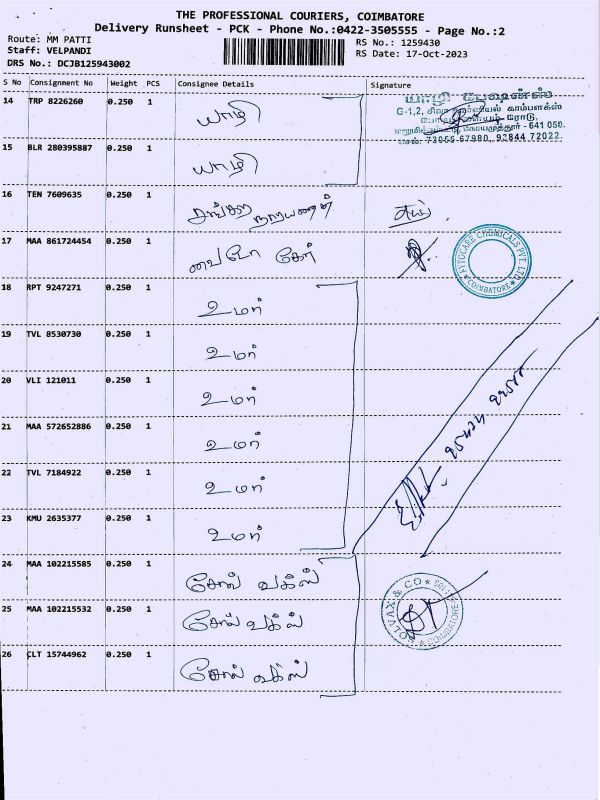 THE PROFESSIONAL COURIERS, COIMBATORE
Delivery Runsheet - PCK - Phone No.:0422-3505555 - Page No.:2
Route: MM PATTI
RS No.: 1259430
Staff: VELPANDI
RS Date: 17-Oct-2023
DRS No.: DCJB125943002
S No Consignment No Weight PCS Consignee Details Signature
14 TRP 8226260 0.250 1 யாழி
G-1,2, சிவா காம்பளக்ஸ்
கோயமுத்தூர் - 641 050.
73055 67980, 92844 72022.
15 BLR 280395887 0.250 1 யாழி
16 TEN 7609635 0.250 1 சங்கர நாராயணன்
17 MAA 861724454 0.250 1 பைடோ கேர்
FYTOCARE CHEMICALS PVT. LTD.
COIMBATORE
18 RPT 9247271 0.250 1 உமா
19 TVL 8530730 0.250 1 உமா
20 VLI 121011 0.250 1 உமா
21 MAA 572652886 0.250 1 உமா
22 TVL 7184922 0.250 1 உமா
23 KMU 2635377 0.250 1 உமா
24 MAA 102215585 0.250 1 சோல் வக்ஸ்
25 MAA 102215532 0.250 1 சோல் வக்ஸ்
SOLVAX & CO
COIMBATORE
26 CLT 15744962 0.250 1 சோல் வக்ஸ்